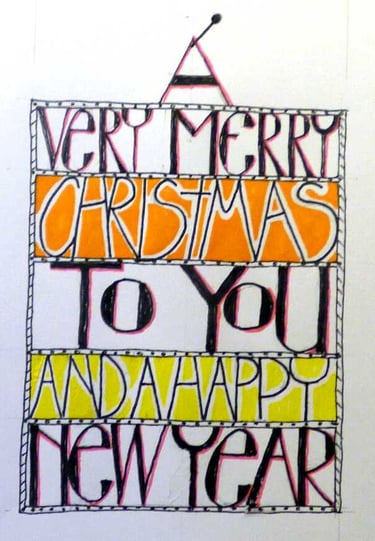 A
VERY MERRY
CHRISTMAS
TO YOU
AND A HAPPY
NEW YEAR